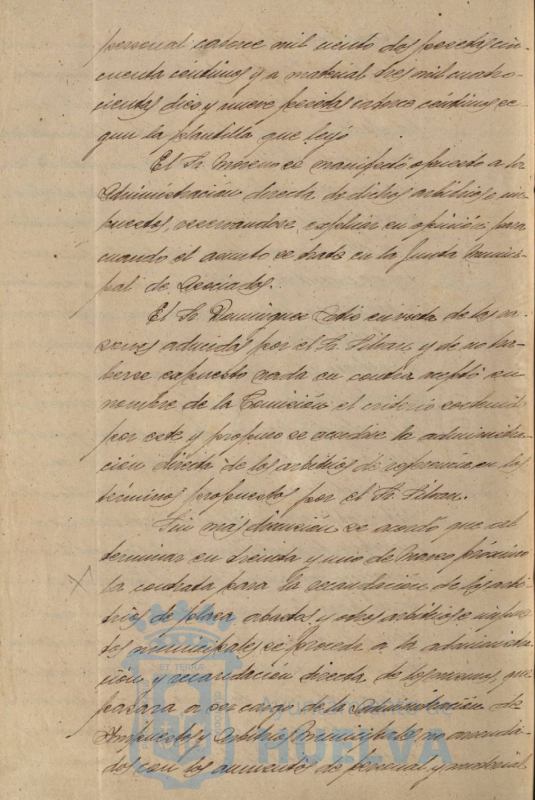 personal catorce mil ciento dos pesetas cin-
cuenta centimos y a material tres mil cuatro-
cientas diez y nueve pesetas catorce céntimos se-
gun la plantilla que leyó.
El Sr. Moreno se manifestó opuesto a la
Administración directa de dichos arbitrios e im-
puestos, reservandose explicar su opinión para
cuando el asunto se trate en la Junta Munici-
pal de Asociados.
El Sr. Dominguez en vista de las ra-
zones aducidas por el Sr. y de no ha-
berse expuesto nada en contra aceptó en
nombre de la Comisión el criterio sostenido
por este y propuso se acordase la administra-
ción directa de los arbitrios de referencia en los
términos propuestos por el Sr.
Sin más discusión se acordó que al
terminar en treinta y uno de Marzo próximo
la contrata para la recaudación de los arbi-
trios de plaza, abastos y otros arbitrios e impues-
tos municipales se proceda a la administra-
ción y recaudación directa de los mismos, que
pasará a ser cargo de la Administración de
Impuestos y Arbitrios Municipales no arrenda-
dos con los aumentos de personal y material
ET TERRA
Ayuntamiento de
HUELVA